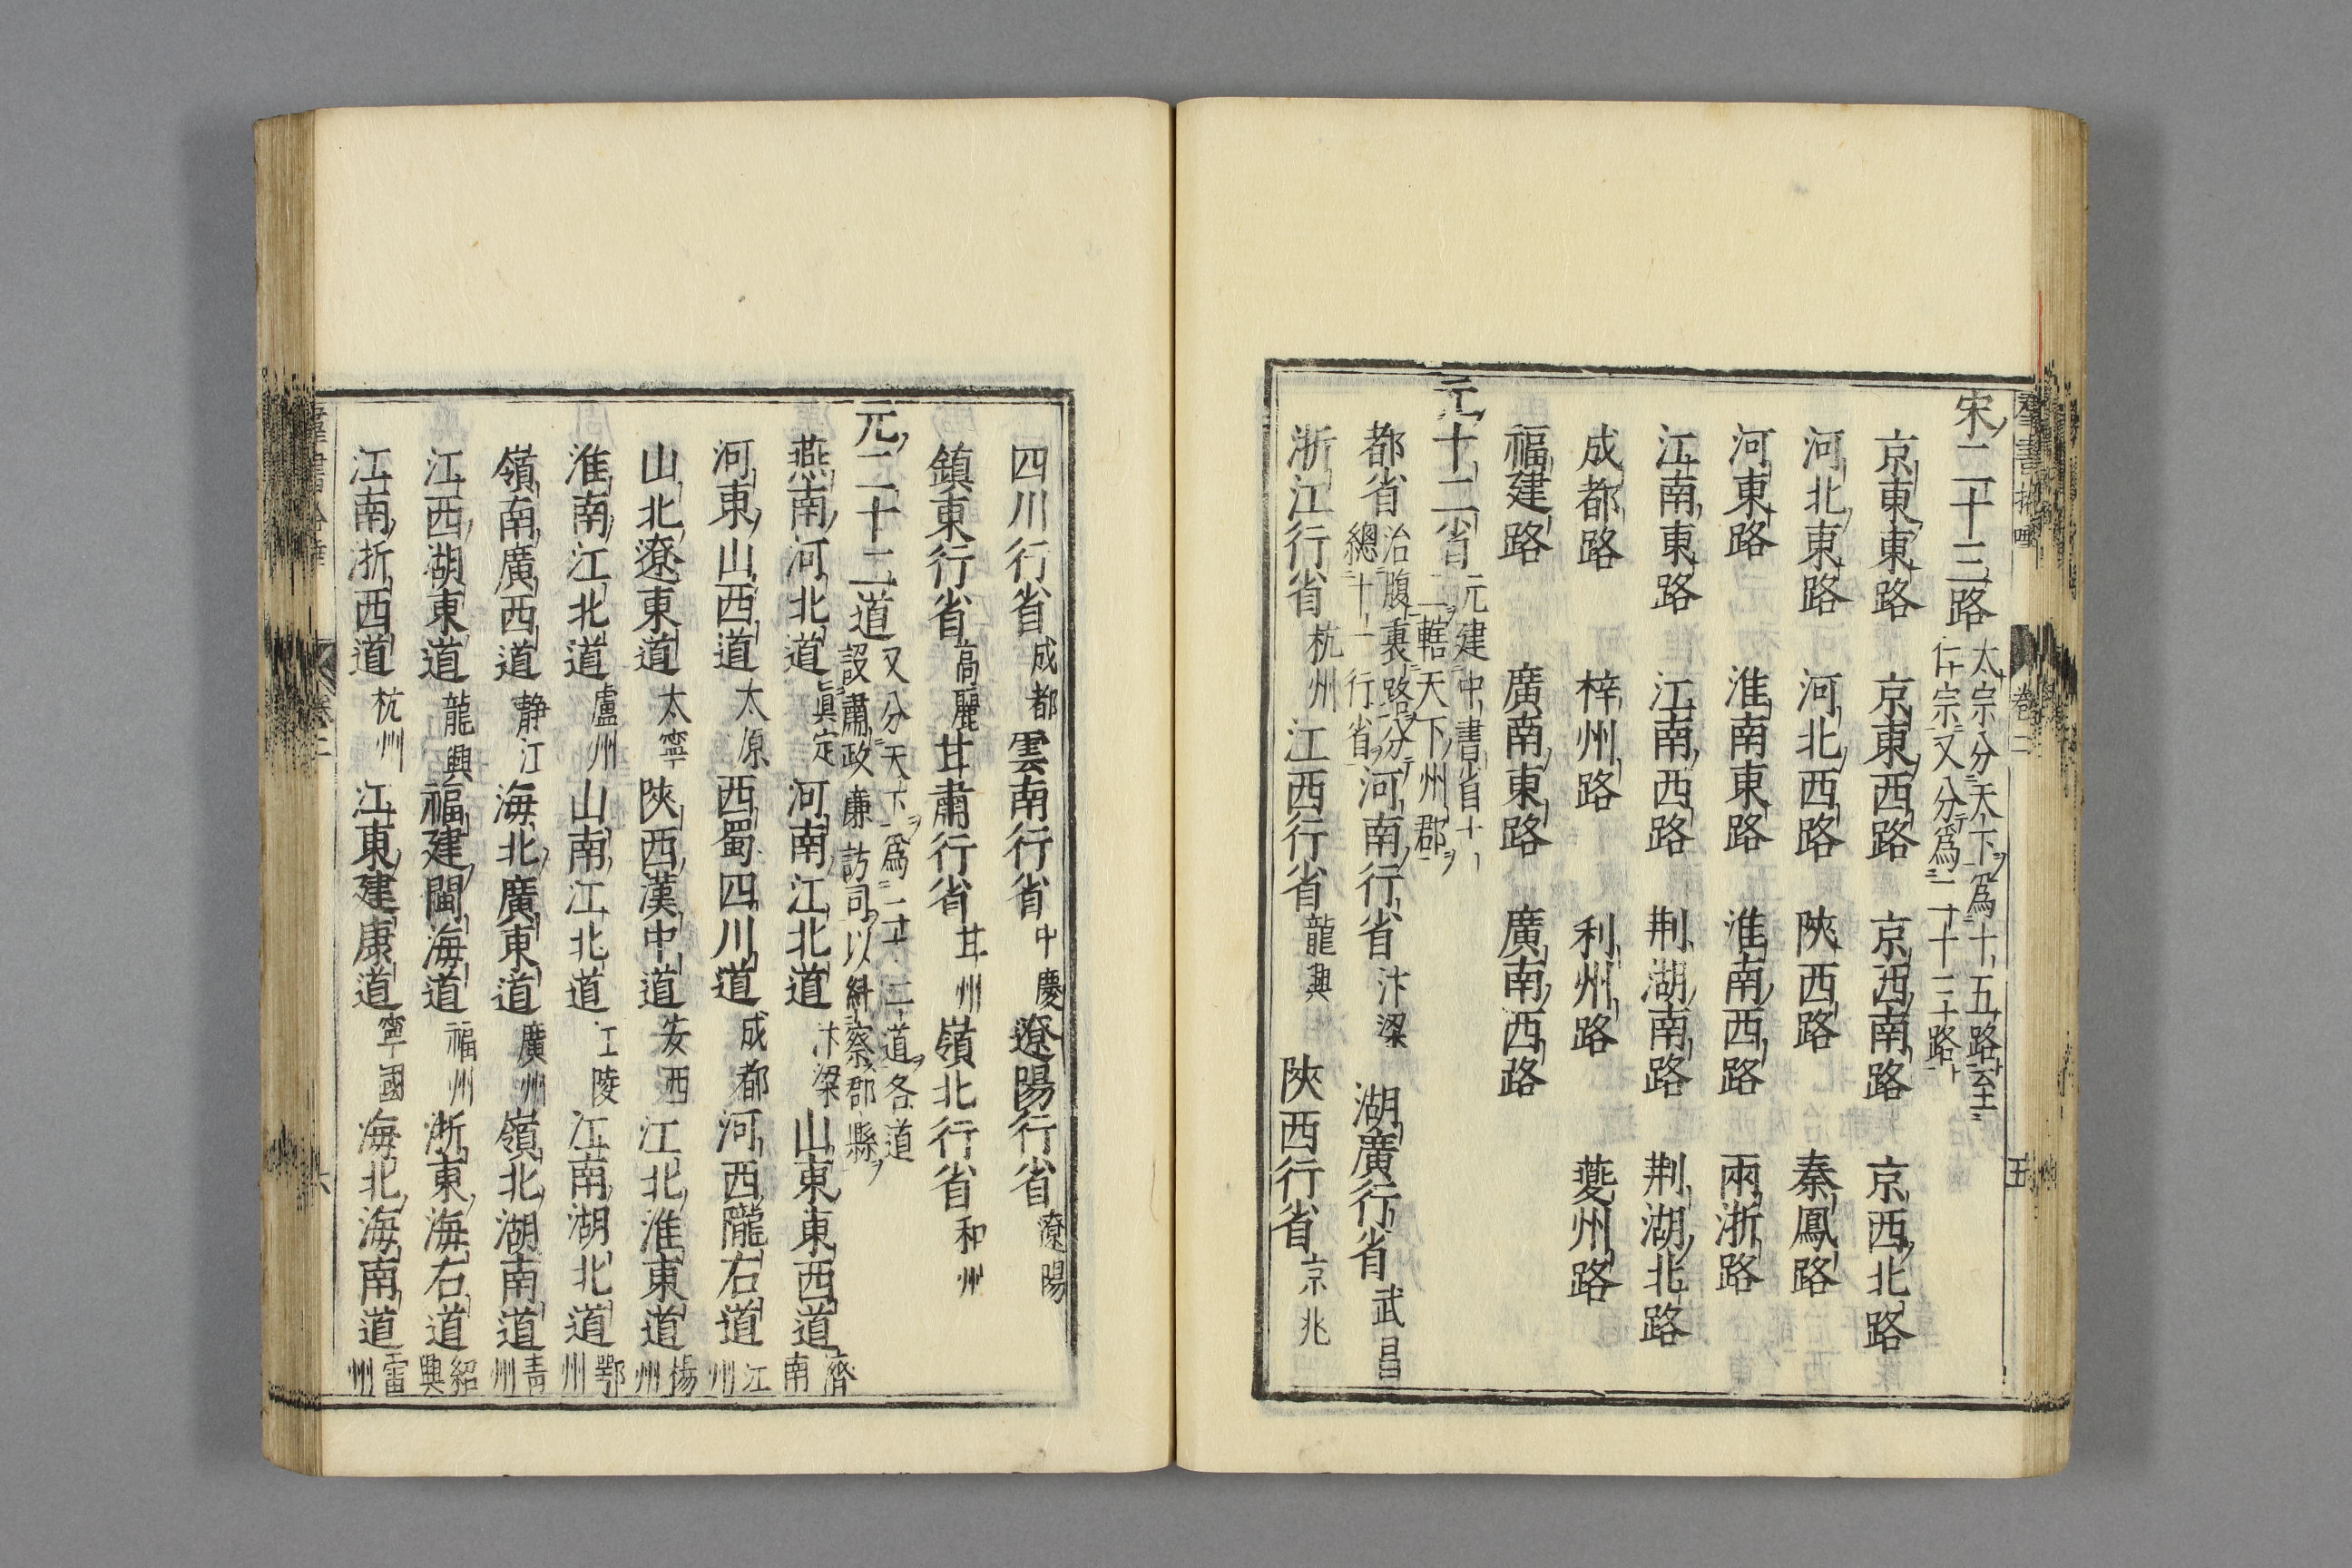 宋二十三路 太宗分天下爲十五路至仁宗又分爲二十三路
京東東路 京東西路 京西南路 京西北路
河北東路 河北西路 陝西路 秦鳳路
河東路 淮南東路 淮南西路 兩浙路
江南東路 江南西路 荆湖南路 荆湖北路
成都路 梓州路 利州路 夔州路
福建路 廣南東路 廣南西路
元十二省 元建中書省十二轄天下州郡
都省 治腹裏路分總十一行省 河南行省 汴梁 湖廣行省 武昌
浙江行省 杭州 江西行省 龍興 陝西行省 京兆
四川行省 成都 雲南行省 中慶 遼陽行省 遼陽
鎮東行省 高麗 甘肅行省 甘州 嶺北行省 和州
元二十二道 又分天下爲二十二道各道設肅政廉訪司以糾察郡縣
燕南河北道 眞定 河南江北道 汴梁 山東東西道 濟南
河東山西道 太原 西蜀四川道 成都 河西隴右道 江州
山北遼東道 太寧 陝西漢中道 安西 江北淮東道 楊州
淮南江北道 盧州 山南江北道 江陵 江南湖北道 鄂州
嶺南廣西道 静江 海北廣東道 廣州 嶺北湖南道 青州
江西湖東道 龍興 福建閩海道 福州 浙東海右道 紹興
江南浙西道 杭州 江東建康道 寧國 海北海南道 雷州
卷二
五
六